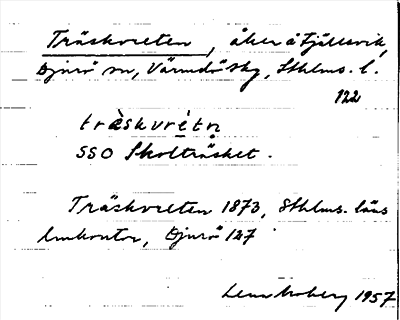 Träskvreten, åker å Fjällsvik,
Djurö sn, Värmdö skg, Sthlms. l.
122
träskvrétn
SSO Skolträsket.
Träskvreten 1873, Sthlms. läns
lmkontor, Djurö 127
1957